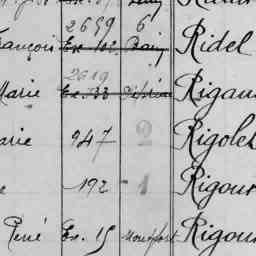 2659 6
François Ex. 102 Bain Ridel
2619
Marie Ex. 33 Rigau
arie 947 2 Rigolet
e 192 1 Rigour
René Ex. 15 Montfort Rigou